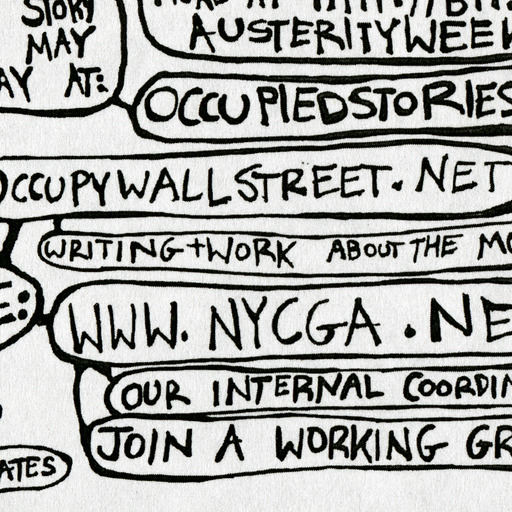 STORY
MAY
AY AT:
AUSTERITYWEEK
OCCUPIEDSTORIES
OCCUPYWALLSTREET.NET
WRITING+WORK ABOUT THE MO
E:
WWW.NYCGA.NE
OUR INTERNAL COORDIN
JOIN A WORKING GR
ATES